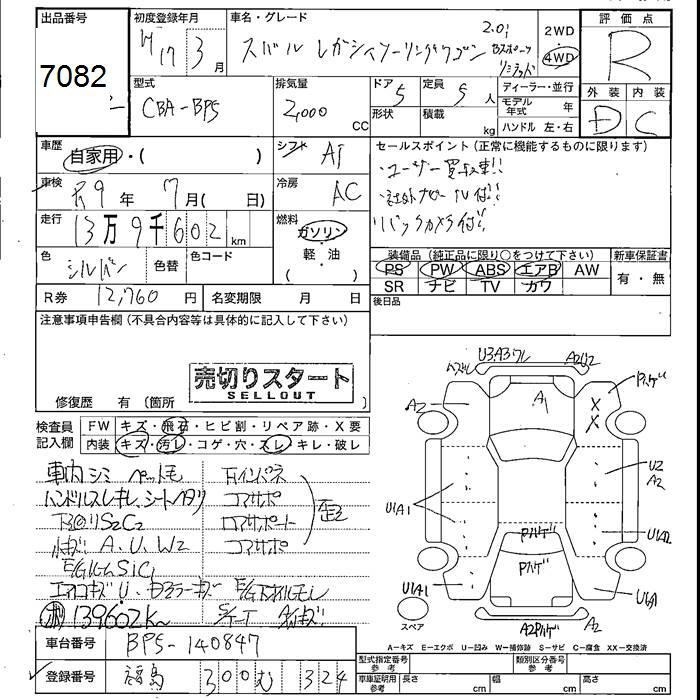 出品番号
7082
初度登録年月
H17 3月
車名・グレード
スバル レガシィツーリングワゴン 2.0i
Bスポーツ
リミテッド
2WD
4WD
評価点
R
外装 内装
D C
型式
CBA-BP5
排気量
2,000 CC
ドア 5
形状
定員 5人
積載 kg
ディーラー・並行
モデル年式 年
ハンドル 左・右
車歴
自家用・( )
シフト
AT
セールスポイント (正常に機能するものに限ります)
・ユーザー買取車!!
・社外ナビ・TV付!!
・バックカメラ付!!
車検
R9年 7月( 日)
冷房
AC
走行
13万9千602km
燃料
ガソリン・
軽・油
( )
色
シルバー
色替
色コード
装備品 (純正品に限り○をつけて下さい)
PS PW ABS エアB AW
SR ナビ TV カワ
新車保証書
有・無
R券 12,760円
名変期限 月 日
後日品
注意事項申告欄(不具合内容等は具体的に記入して下さい)
売切りスタート
SELLOUT
修復歴 有 (箇所 )
検査員
記入欄
FW キズ・飛石・ヒビ割・リペア跡・X要
内装 キズ・汚レ・コゲ・穴・スレ・キレ・破レ
車内シミ ペットモ
ハンドルスレキレ、シートヘタリ
下回りS2C2
小キズ A.U.W2
コアサポ
コアサポ
歪
139602K
車台番号 BP5-140847
登録番号 福島 300 む 324
U3A3ワレ
A2U2
A2
A1
X
X
U2
A2
U1A1
U1A1
A2
スペア
A-キズ E-エクボ U-凹み W-補修跡 S-サビ C-腐食 XX-交換済
型式指定番号
参考
類別区分番号
参考
車庫証明用
参考
長さ cm
幅 cm
高さ cm